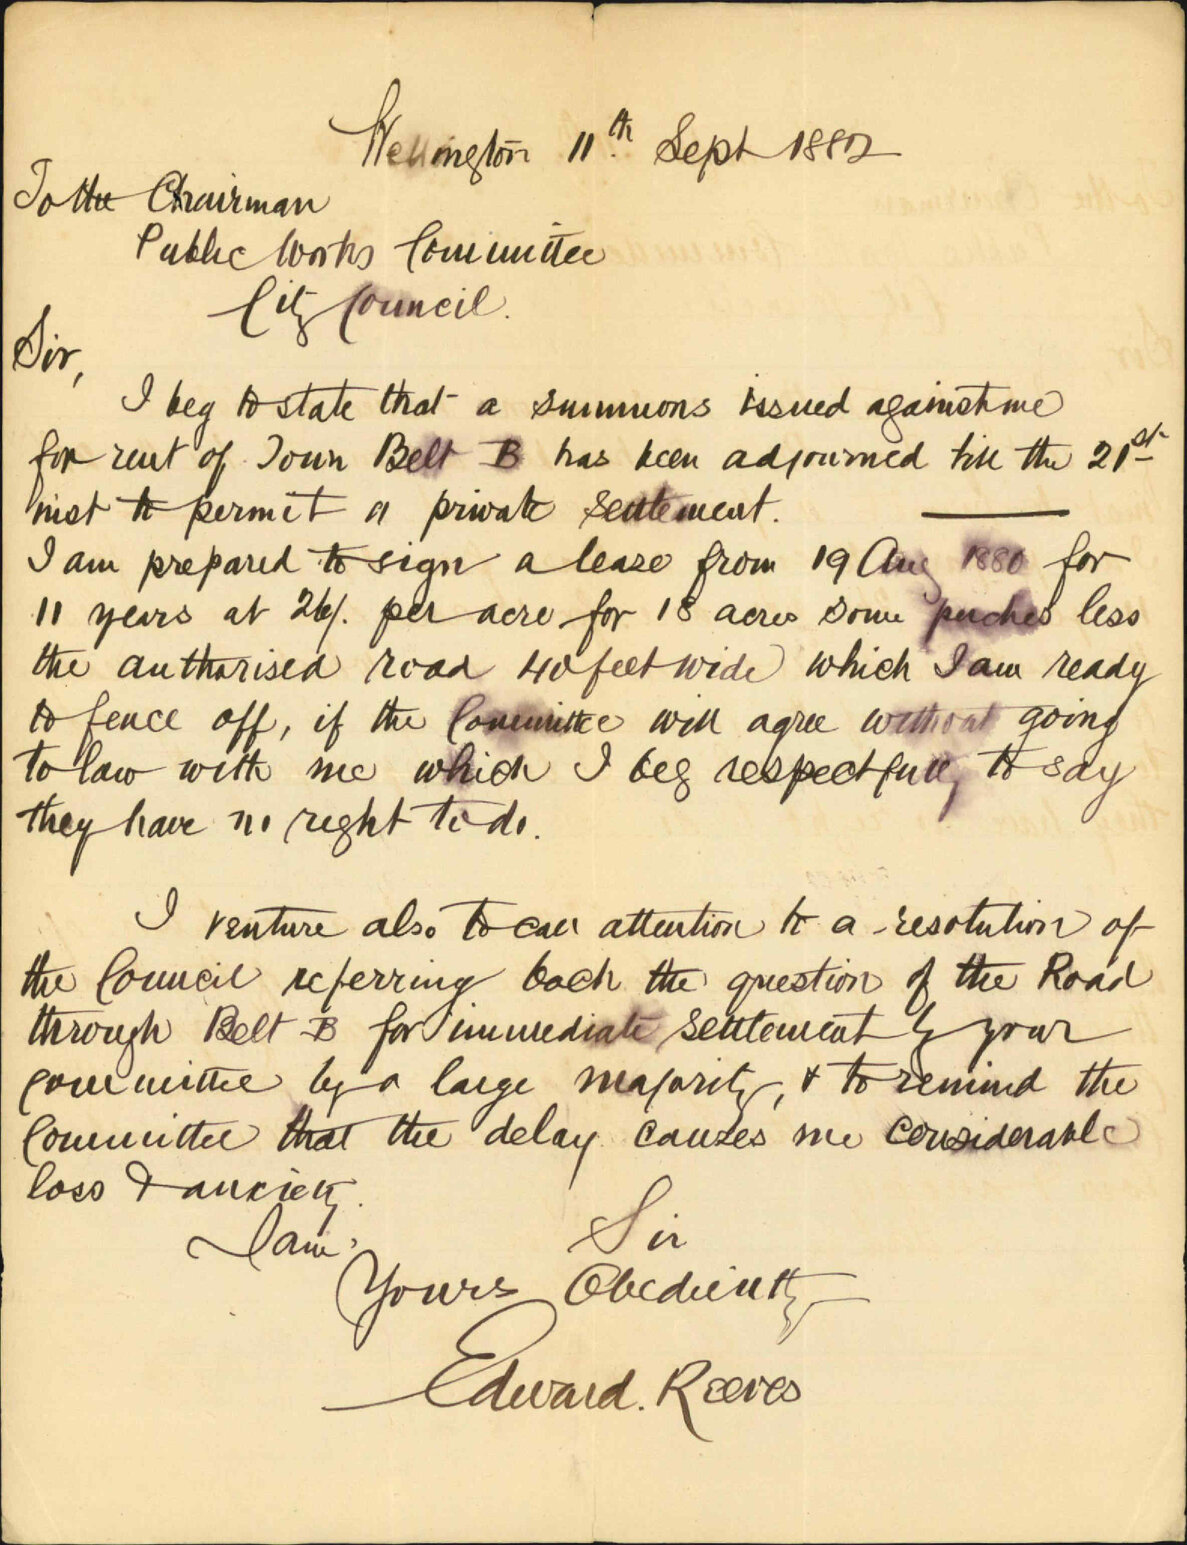 Wellington 11th Sept 1882
To the Chairman
Public Works Committee
City Council.
Sir,
I beg to state that a summons issued against me
for rent of Town Belt B has been adjourned till the 21st
inst to permit a private settlement.
I am prepared to sign a lease from 19 Aug 1880 for
11 years at 26/. per acre for 18 acres some perches less
the authorised road 40 feet wide which I am ready
to fence off, if the Committee will agree without going
to law with me which I beg respectfully to say
they have no right to do.
I venture also to call attention to a resolution of
the Council referring back the question of the Road
through Belt B for immediate settlement by your
committee by a large majority, & to remind the
Committee that the delay causes me considerable
loss & anxiety.
I am, Sir
Yours Obediently
Edward. Reeves